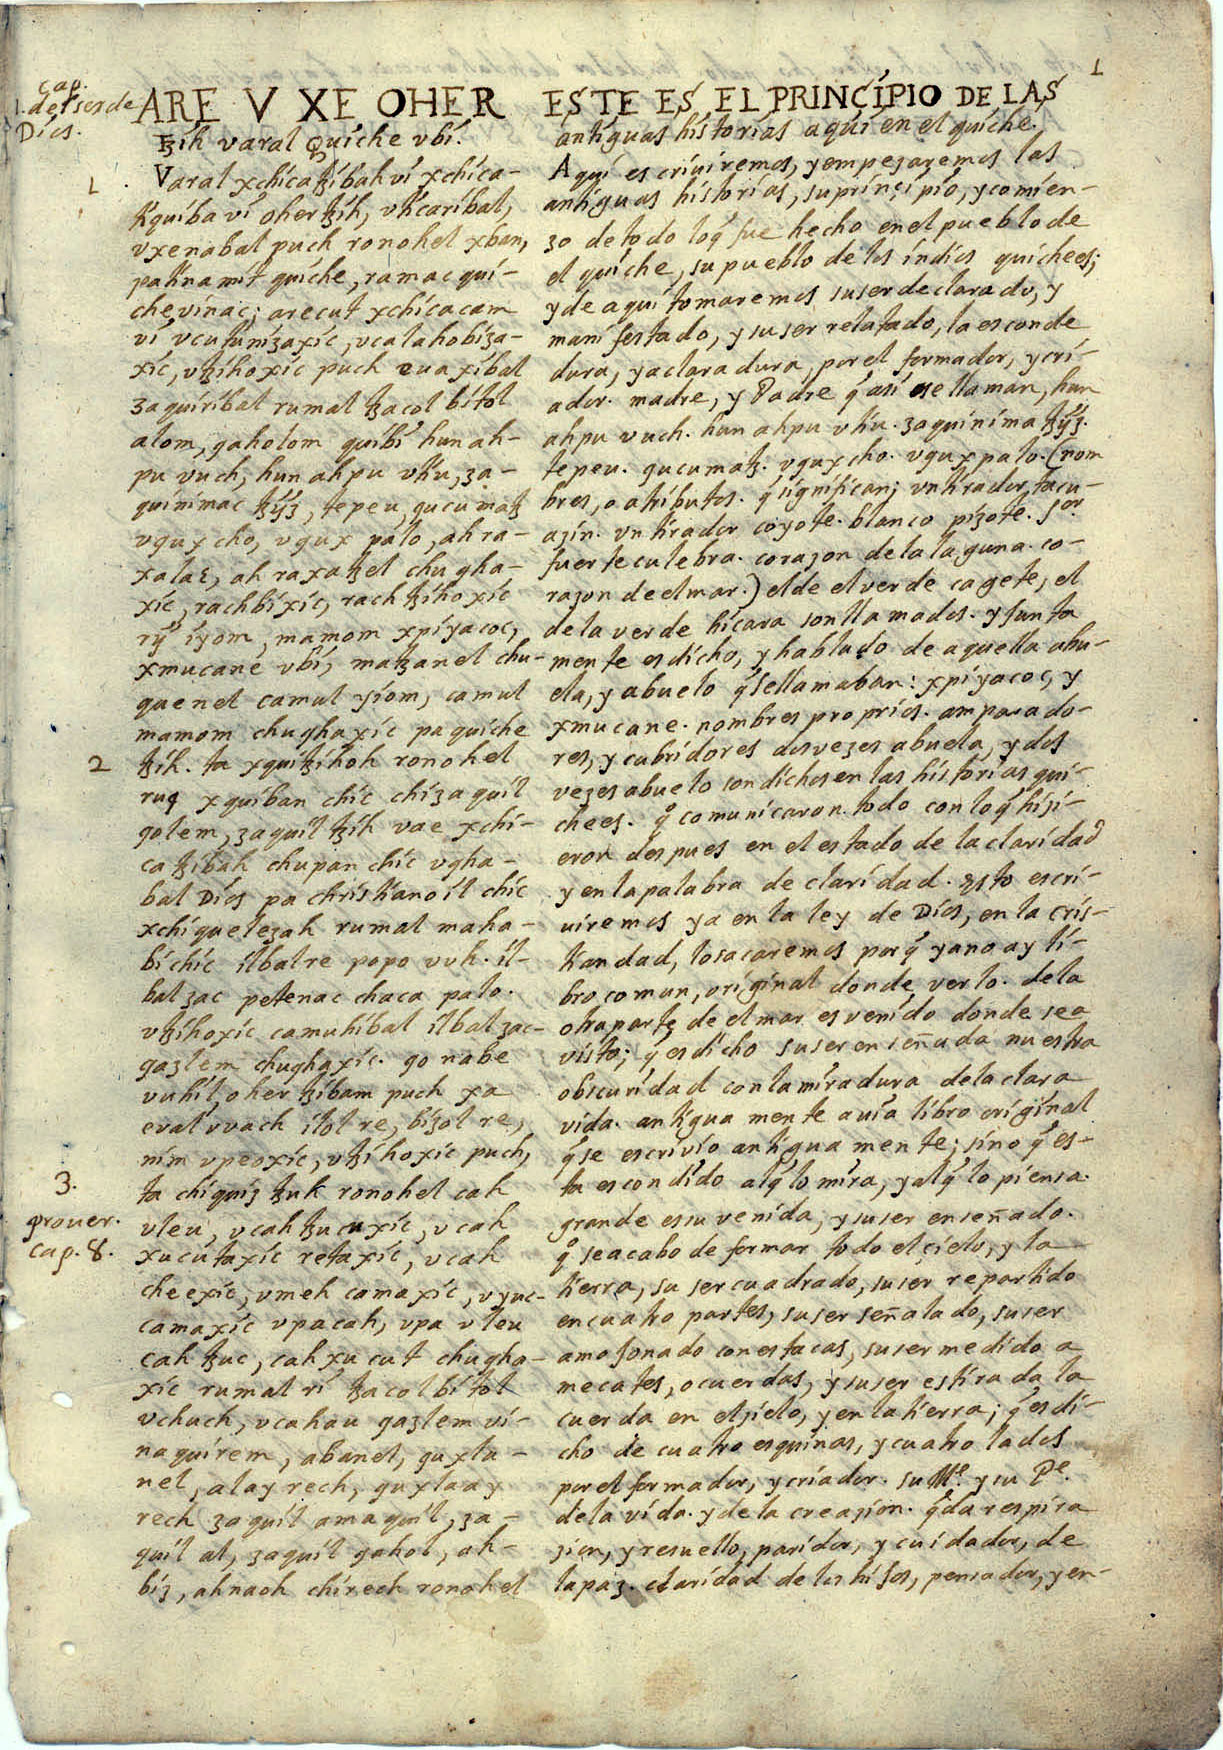 1
cap.
1. del ser de
Dios.
ARE V XE OHER
ꜩíh varal Quíche vbí.
1.
Varal xchícaꜩíbah ví xchíca-
tíquíba ví oher ꜩíh, vtícaríbal,
vxenabal puch ronohel xban,
patínamít quíche, ramac quí-
chevínac; arecut xchícacam
ví vcutuníзaxíc, vcalahobíзa-
xíc, vꜩíhoxíc puch euaxíbal
зaquíríbal rumal ꜩacol bítol
alom, qaholom quíbí hun ah-
pu vuch, hun ahpu vtíu, зa-
quínímac ꜩÿз, tepeu, qucumaꜩ
vqux cho, vqux palo, ah ra-
xalaε, ah raxaꜩel chugha-
xíc, rachbíxíc, rachꜩíhoxíc
rÿ íyom, mamom xpíyacoc,
xmucane vbí, maꜩanel chu-
quenel camul yíom, camul
mamom chughaxíc pa quíche
2
ꜩíh. ta xquíꜩíhoh ronohel
ruq xquíban chíc chíзaquíl
qolem, зaquíl ꜩíh vae xchí-
caꜩíbah chupan chíc vgha-
bal Díos pa chrístíanoíl chíc
xchíqueleзah rumal maha-
bíchíc ílbal re popo vuh. íl-
bal зac petenac chaca palo.
vꜩíhoxíc camuhíbal ílbal зac-
qaзlem chughaxíc. qo nabe
vuhíl, oher ꜩíbam puch xa
eval vvach ílol re, bíзol re,
ním vpeoxíc, vꜩíhoxíc puch,
3.
ta chíquíз ꜩuk ronohel cah
prouer.
cap. 8.
vleu, vcah ꜩucuxíc, vcah
xucutaxíc retaxíc, vcah
cheexíc, vmeh camaxíc, vyuc-
camaxíc vpa cah, vpa vleu
cah ꜩuc, cah xucut chugha-
xíc rumal rí ꜩacol bítol
vchuch, vcahau qaзlem ví-
naquírem, abanel, quxla-
nel, alay rech, quxlaay
rech зaquíl amaquíl, зa-
quíl al, зaquíl qahol, ah-
bíз, ahnaoh chírech ronohel
ESTE ES EL PRINCIPIO DE LAS
antíguas hístorías aquí en el quíche.
Aquí escríuíremos, y empezaremos las
antíguas hístorías, su príncípío, y comíen-
zo de todo loq̃ fue hecho en el pueblo de
el quíche, su pueblo de los índíos quíchees;
y de aquí tomaremos su ser declarado, y
manífestado, y su ser relatado, la esconde
dura, y aclaradura, por el formador, y crí-
ador. madre, y Padre q̃ así se llaman, hun
ahpu vuch. hun ahpu vtíu. зaquíníma ꜩÿз.
tepeu. qucumaꜩ. vqux cho. vqux palo. (nom
bres, o atríbutos. q̃ sígnífícan; vn tírador, tacu-
azín. vn tírador coyote. blanco pízote. sor
fuerte culebra. corazon de la laguna. co-
razon de el mar.) el de el verde cagete, el
de la verde hícara son llamados. y junta
mente es dícho, y hablado de aquella abu-
ela, y abuelo q̃ se llamaban: xpíyacoc, y
xmucane. nombres propríos. amparado-
res, y cubrídores dos vezes abuela, y dos
vezes abuelo son díchos en las hístorías quí-
chees. q̃ comunícaron. todo con loq̃ hízí-
eron despues en el estado de la clarídad
y en la palabra de clarídad. Esto escrí-
uíremos ya en la ley de Díos, en la crís-
tíandad, lo sacaremos porq̃ ya no ay lí-
bro comun, orígínal donde verlo. de la
otra parte de el mar es venído donde sea
vísto; q̃ es dícho su ser enseñada nuestra
obscurídad con la míradura de la clara
vída. antígua mente auía líbro orígínal
q̃ se escrívío antígua mente; síno q̃ es-
ta escondído alq̃ lo míra, y alq̃ lo píensa.
grande es su venída, y su ser enseñado.
q̃ se acabo de formar todo el cíelo, y la
tíerra, su ser cuadrado, su ser repartído
en cuatro partes, su ser señalado, su ser
amojonado con estacas, su ser medído a
mecates, o cuerdas, y su ser estírada la
cuerda en el zíelo, y en la tíerra; q̃ es dí-
cho de cuatro esquínas, y cuatro lados
por el formador, y críador. su Mᵉ. y su Pᵉ.
de la vída. y de la creazíon. q̃ da respíra
zíon, y resuello, parídor, y cuídador, de
la paz. clarídad de los híjos, pensador, y en-